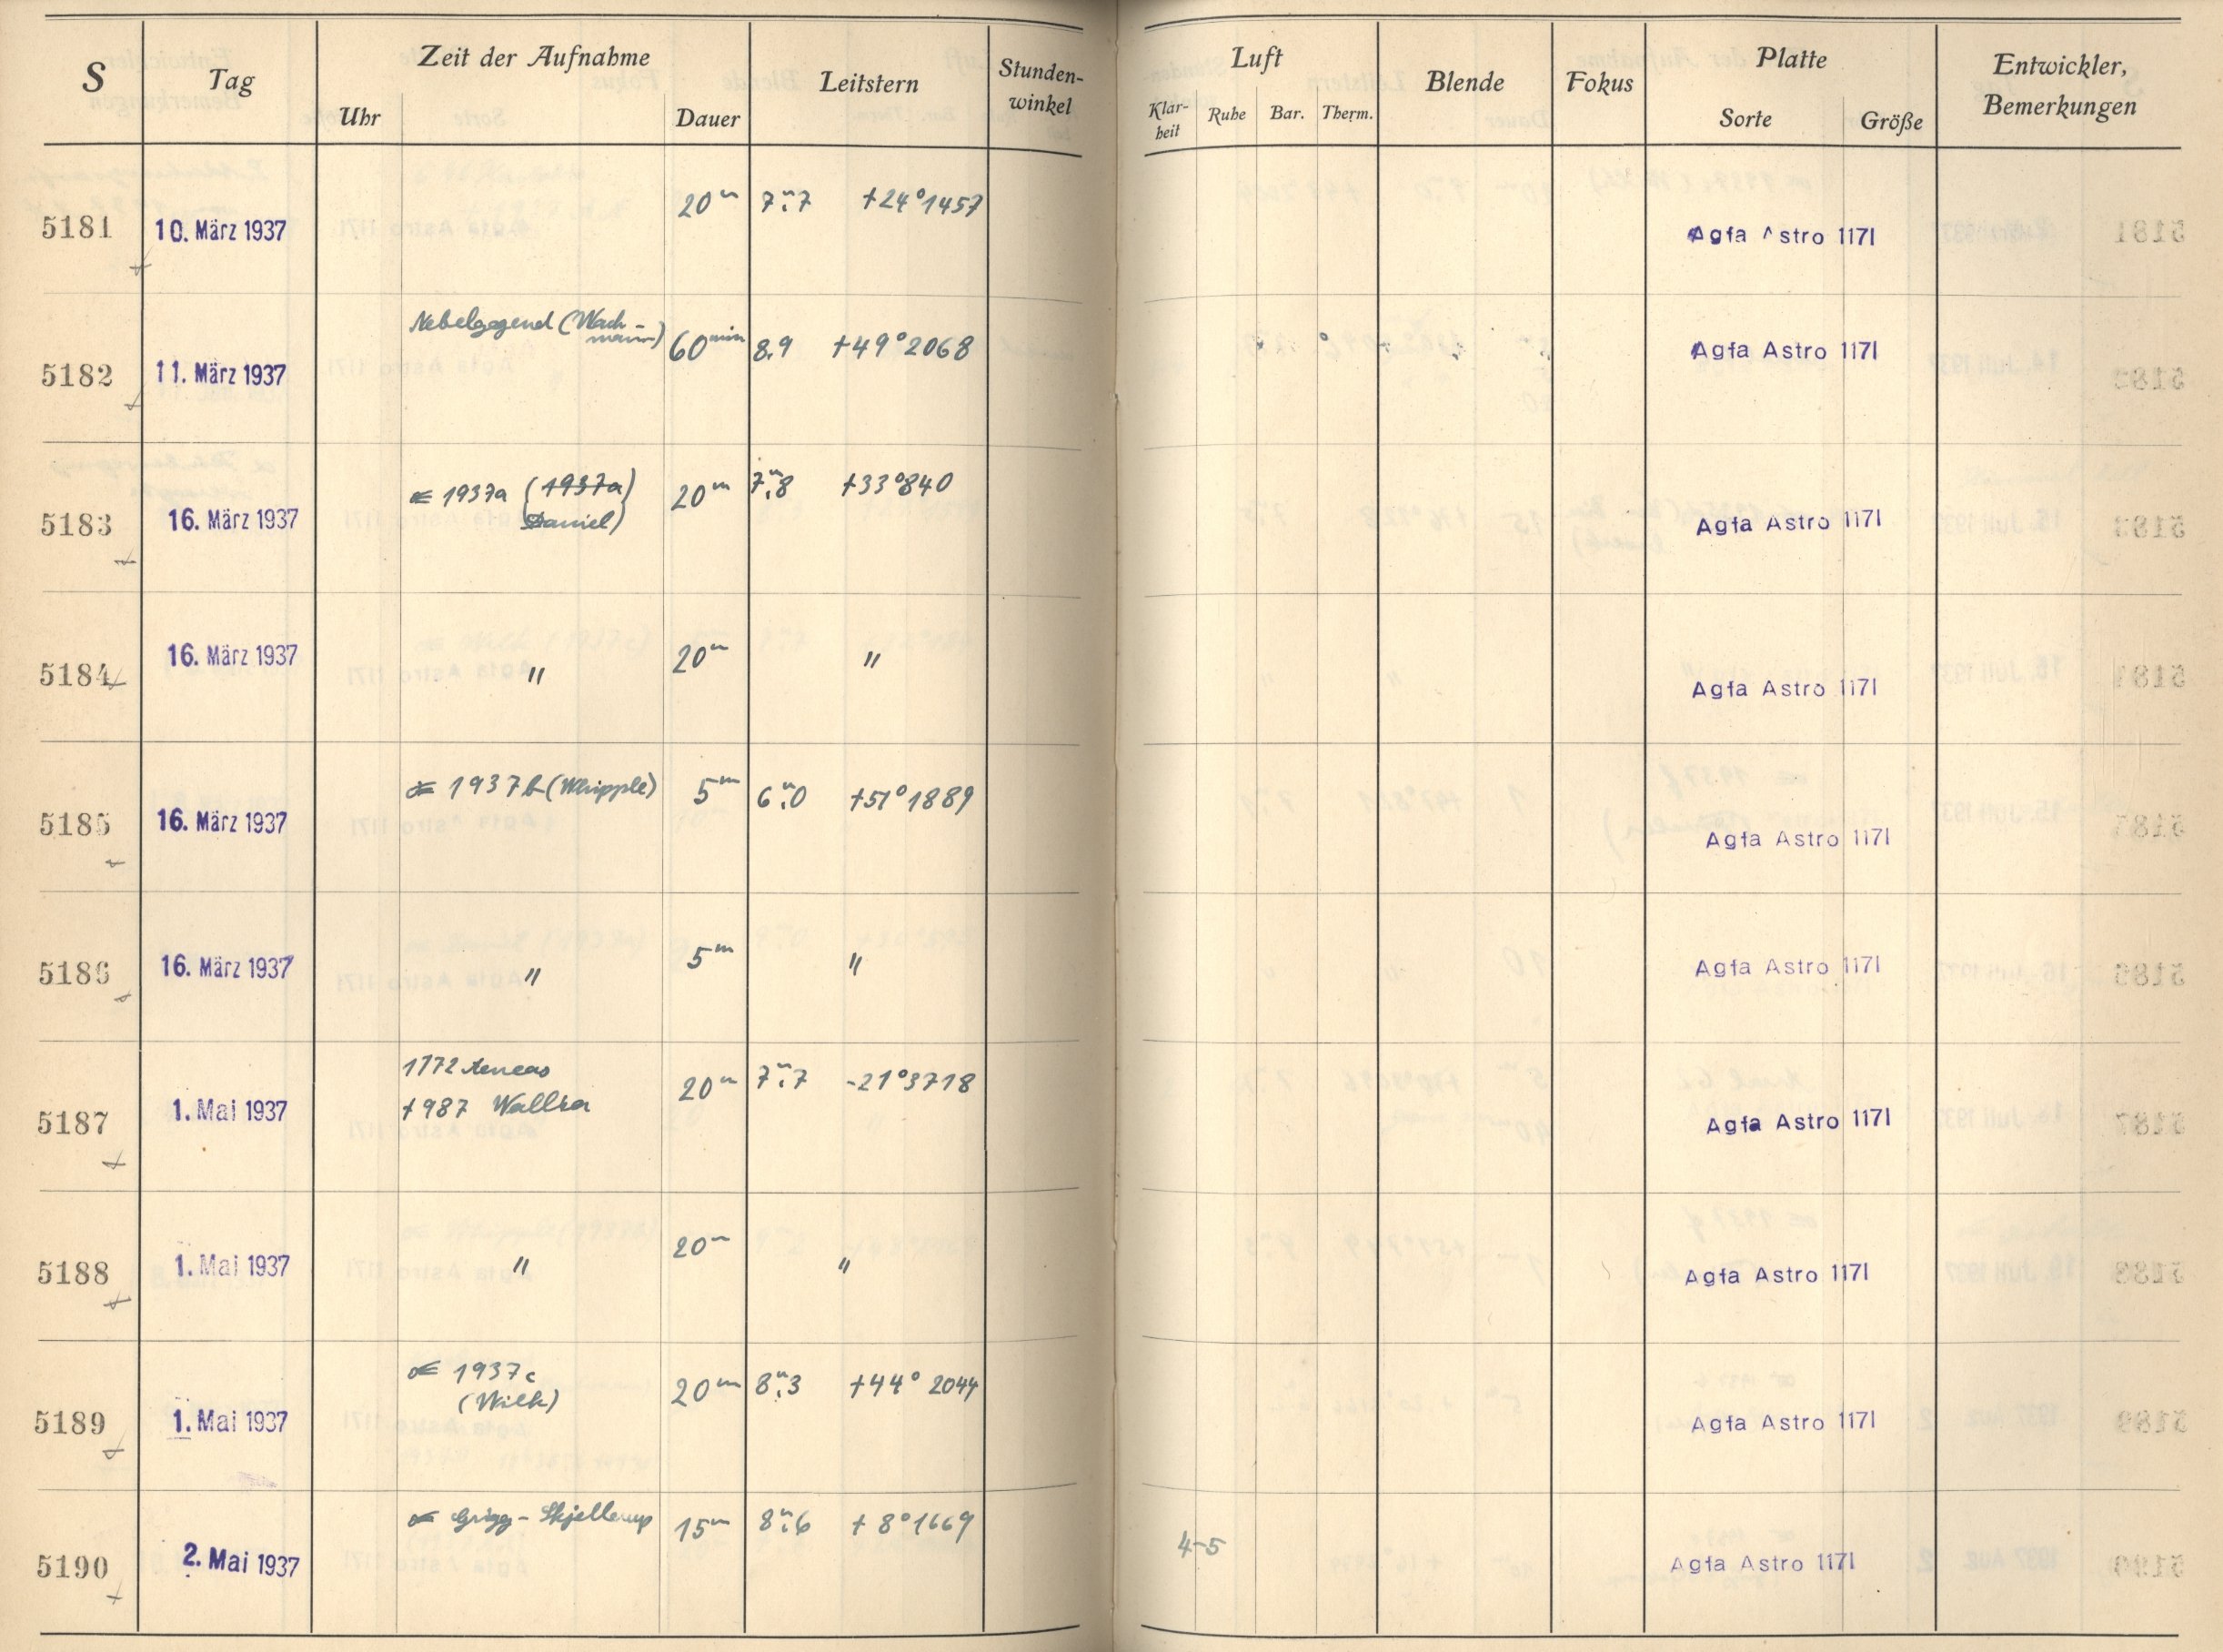 S Tag Zeit der Aufnahme Leitstern Stunden-winkel Luft Blende Fokus Platte Entwickler, Bemerkungen
Uhr Dauer Klar-heit Ruhe Bar. Therm. Sorte Größe
5181 10. März 1937 20m 7m.7 +24°1457 Agfa Astro 1171
5182 11. März 1937 Nebelgegend (Wach-mann) 60min 8.9 +49°2068 Agfa Astro 1171
5183 16. März 1937 ☄ 1937a (1937a) 20m 7m.8 +33°840 Agfa Astro 1171
Daniel)
5184 16. März 1937 " 20m " Agfa Astro 1171
5185 16. März 1937 ☄ 1937b (Whipple) 5m 6m.0 +51°1889 Agfa Astro 1171
5186 16. März 1937 " 5m " Agfa Astro 1171
5187 1. Mai 1937 1172 Aeneas 20m 7m.7 -21°3718 Agfa Astro 1171
+987 Wallia
5188 1. Mai 1937 " 20m " Agfa Astro 1171
5189 1. Mai 1937 ☄ 1937c 20m 8m.3 +44° 2044 Agfa Astro 1171
(Wilk)
5190 2. Mai 1937 ☄ Grigg-Skjellerup 15m 8m.6 + 8°1669 4-5 Agfa Astro 1171